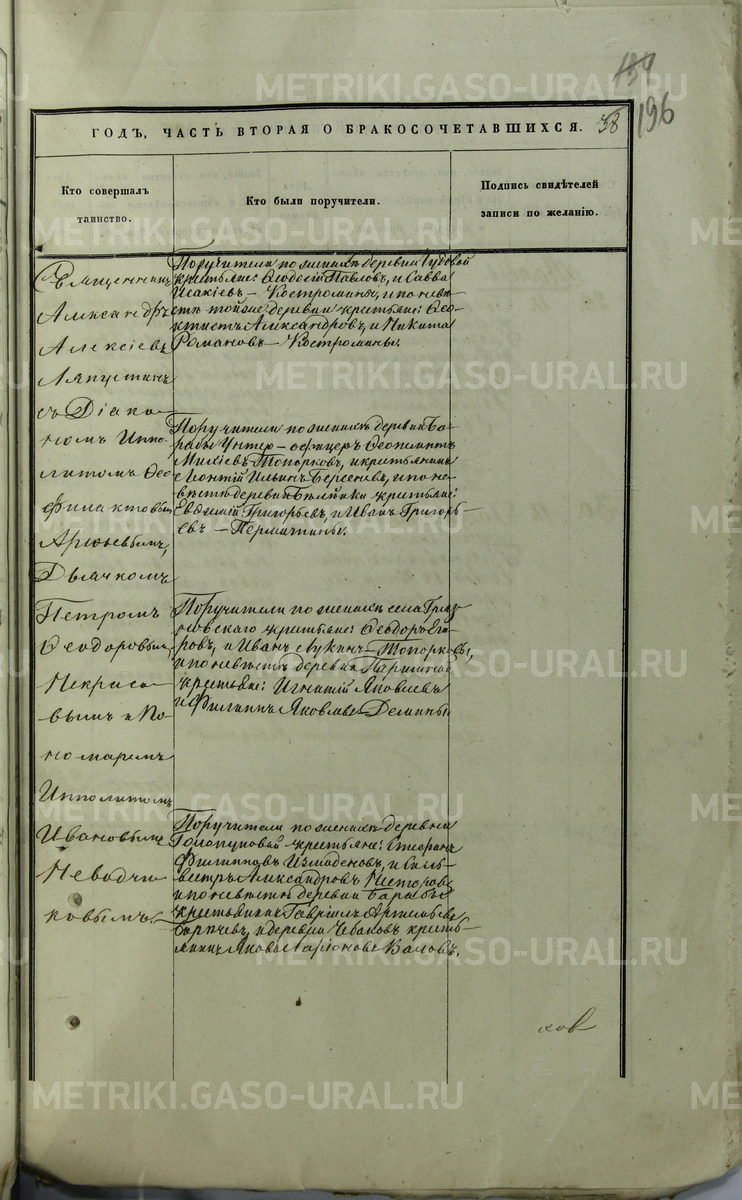 METRIKI.GASO-URAL.RU
196
ГОДЪ, ЧАСТЬ ВТОРАЯ О БРАКОСОЧЕТАВШИХСЯ. 38
Кто совершалъ
таинство.
Кто были поручители.
Подпись свидѣтелей
записи по желанію.
Священникъ
Александръ
Алексіевъ
Ляпустинъ
съ Діако-
номъ Иппо-
литомъ Ѳео-
филактовымъ
Дьячкомъ
Петромъ
Ѳеодоровымъ
Некрасо-
вымъ и По-
номаремъ
Ипполитомъ
Ивановымъ
Неводчи-
ковымъ.
Поручители по женихѣ деревни
крестьяне: Ѳеодосій Павловъ, и Савва
Исакіевъ – Костромины, и по невѣ-
стѣ той же деревни крестьяне: Ѳео-
ктистъ Александровъ, и Никита
Романовъ – Костромины.
Поручители по женихѣ деревни Ба-
рабы Унтер-офицеръ Ѳеопемптъ
Топорковъ, и крестьянинъ
Леонтій Ильинъ Береснев, и по не-
вѣстѣ деревни Бѣлейки крестьяне:
Евдокимъ Григорьевъ, и Иванъ Григорь-
евъ –
Поручители по женихѣ села Гряз-
новскаго крестьяне: Ѳеодоръ Его-
ровъ, и Иванъ Лукинъ – Топорковы,
и по невѣстѣ деревни
крестьяне: Игнатій Яковлевъ
и Филиппъ Яковлевъ Демины
Поручители по женихѣ деревни
крестьяне: Стефанъ
Филипповъ Измоденовъ, и Силь-
вестръ Александровъ Нестеровъ
и по невѣстѣ деревни Барабы
крестьянинъ Гавріилъ
и деревни Чебаковъ кресть-
янинъ Яковъ Ларіоновъ Валовъ.
ковъ